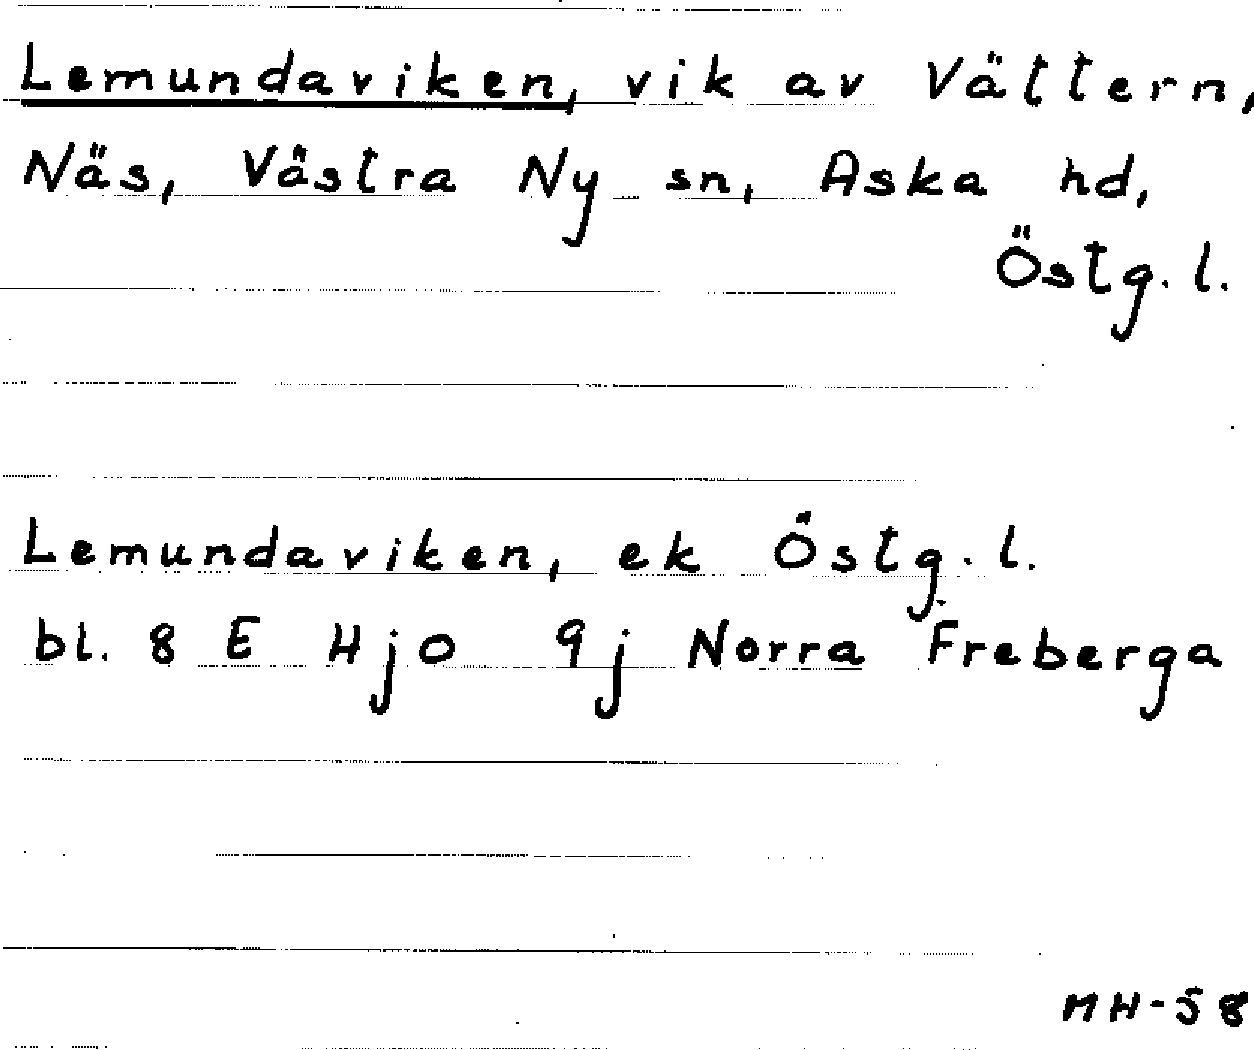 Lemundaviken, vik av Vättern,
Näs, Västra Ny sn, Aska hd,
Östg. l.
Lemundaviken, ek Östg. l.
bl. 8 E Hjo 9j Norra Freberga
MH-58